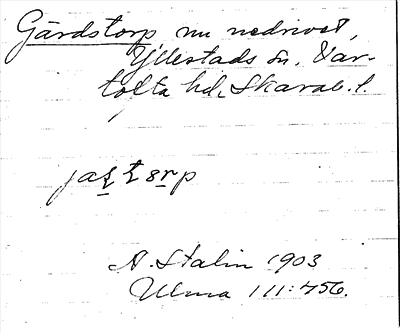 Gärdstorp nu nedrivet,
Yllestads sn, Var-
tofta hd, Skarab. l.
A. Stalin 1903
Ulma 111:456.